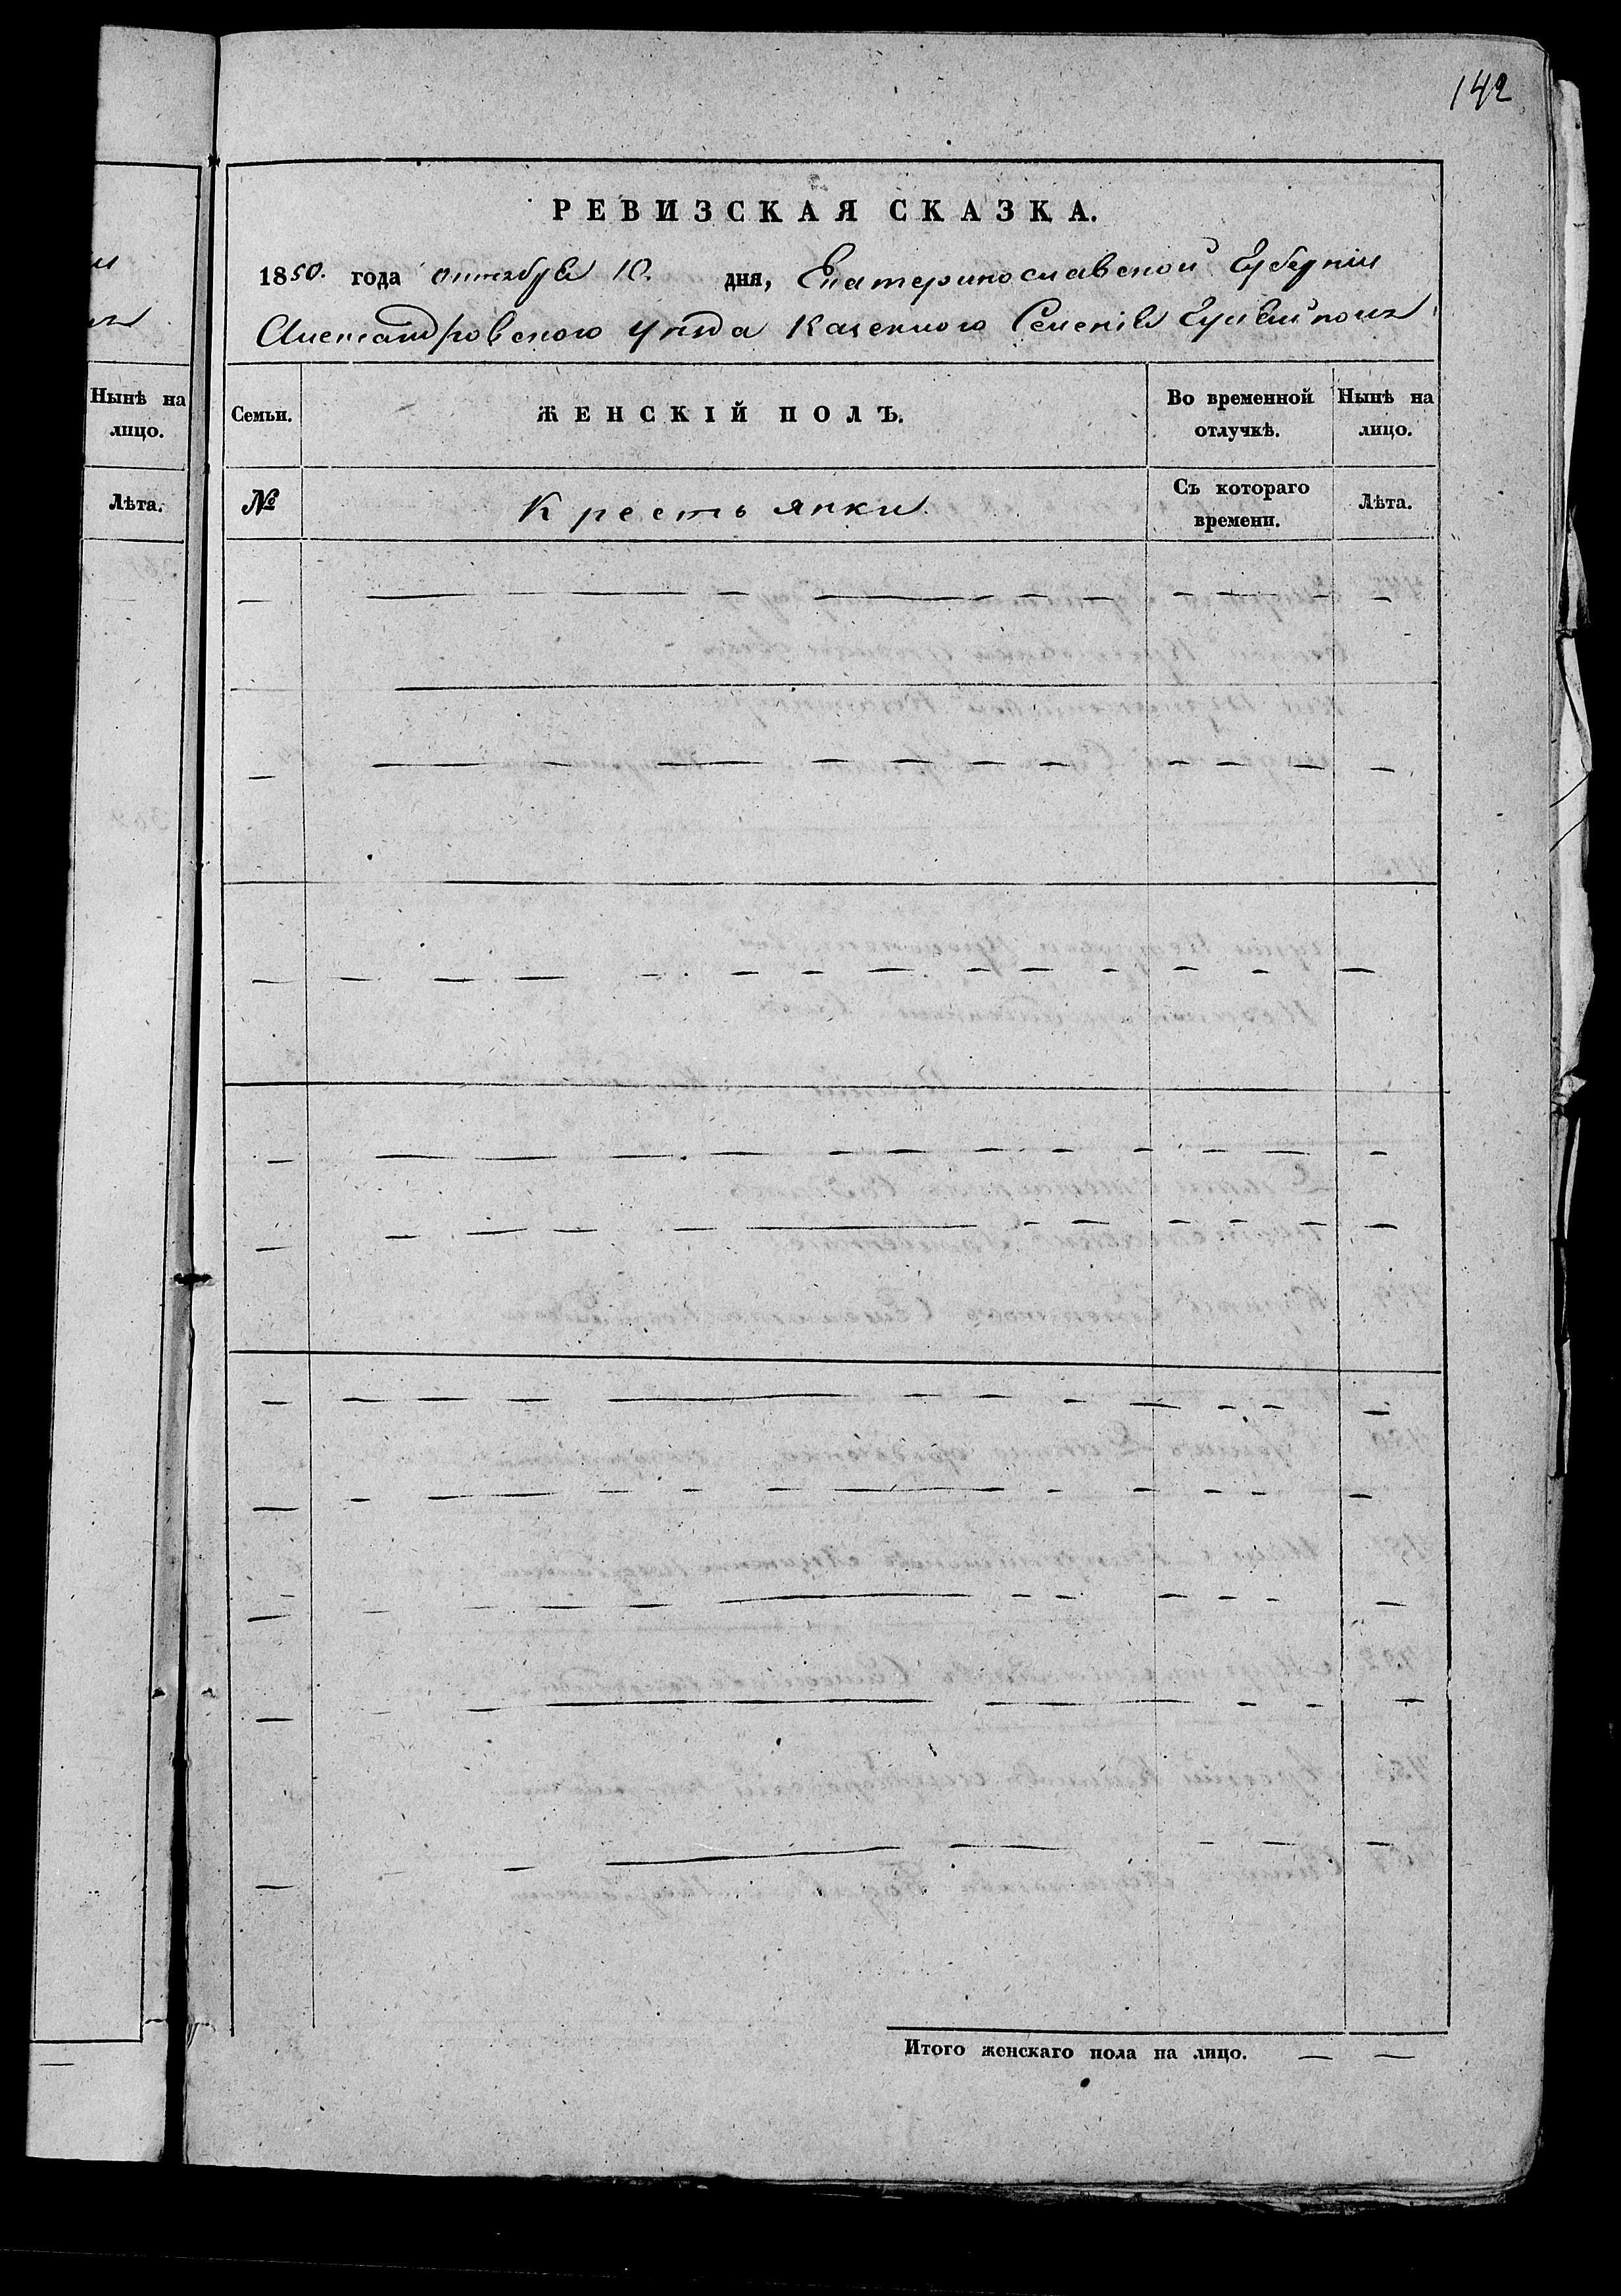 142
РЕВИЗСКАЯ СКАЗКА.
1850. года октября 10. дня, Екатеринославской Губерніи
Александровского уѣзда Казенного Селенія Гуляйполя
Нынѣ на лицо.
Лѣта.
Семьи.
ЖЕНСКІЙ ПОЛЪ.
Во временной отлучкѣ.
Нынѣ на лицо.
№
Крестьянки
Съ котораго времени.
Лѣта.
Итого женскаго пола на лицо. — —